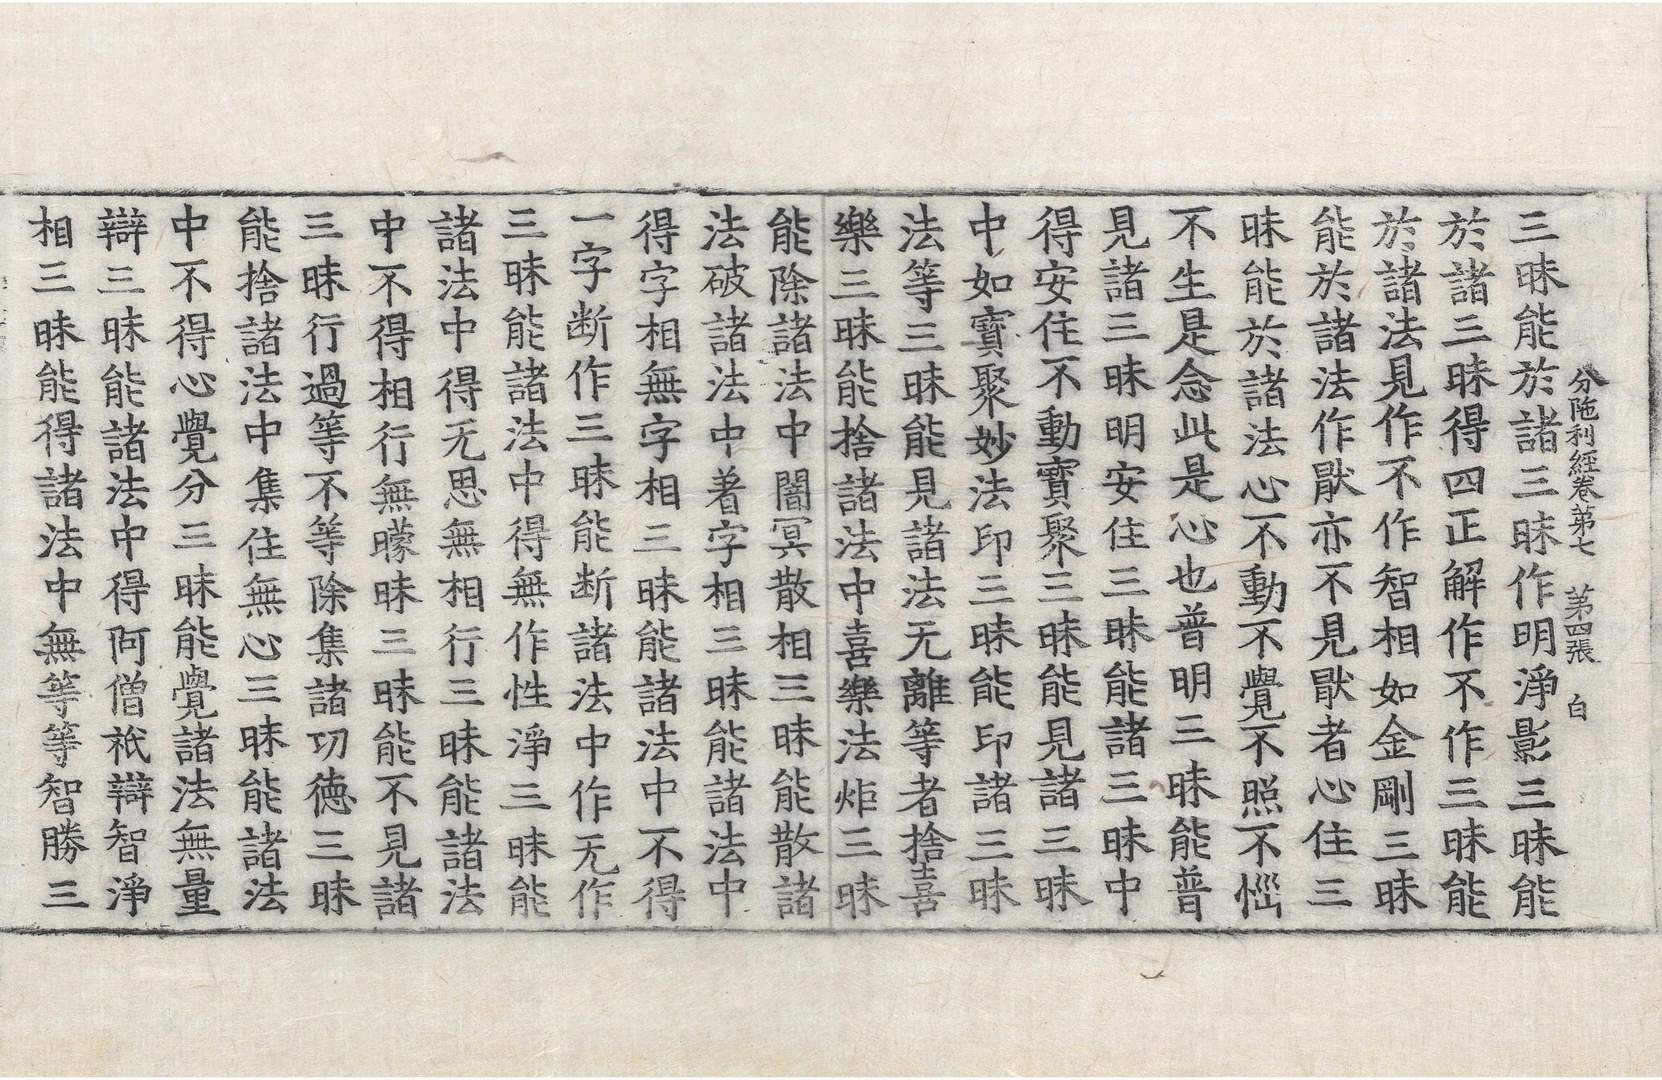 分陁利經卷第七　第四張　白
三昧能於諸三昧作明淨影三昧能
於諸三昧得四正解作不作三昧能
於諸法見作不作智相如金剛三昧
能於諸法作猒亦不見猒者心住三
昧能於諸法心不動不覺不照不惱
不生是念此是心也普明三昧能普
見諸三昧明安住三昧能諸三昧中
得安住不動寶聚三昧能見諸三昧
中如寶聚妙法印三昧能印諸三昧
法等三昧能見諸法无離等者捨喜
樂三昧能捨諸法中喜樂法炬三昧
能除諸法中闇冥散相三昧能散諸
法破諸法中著字相三昧能諸法中
得字相無字相三昧能諸法中不得
一字断作三昧能断諸法中作无作
三昧能諸法中得無作性淨三昧能
諸法中得无思無相行三昧能諸法
中不得相行無曚昧三昧能不見諸
三昧行過等不等除集諸功德三昧
能捨諸法中集住無心三昧能諸法
中不得心覺分三昧能覺諸法無量
辯三昧能諸法中得阿僧祇辯智淨
相三昧能得諸法中無等等智勝三